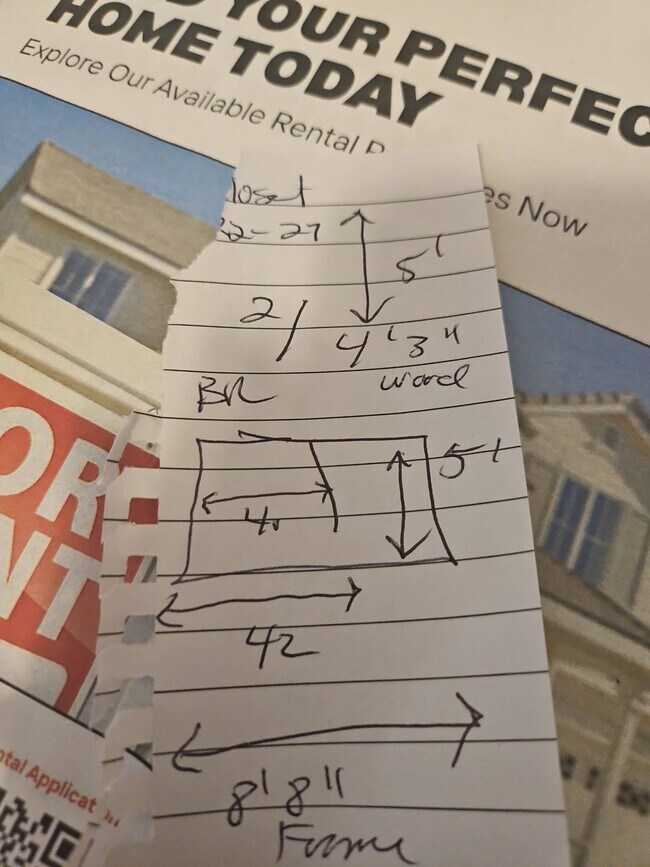 YOUR PERFEC
HOME TODAY
Explore Our Available Rental P
es Now
loset
22-27
5'
2/
4'3"
wood
BR
5'
40
42
8' 8"
Frame
OR
NT
ntal Applicat